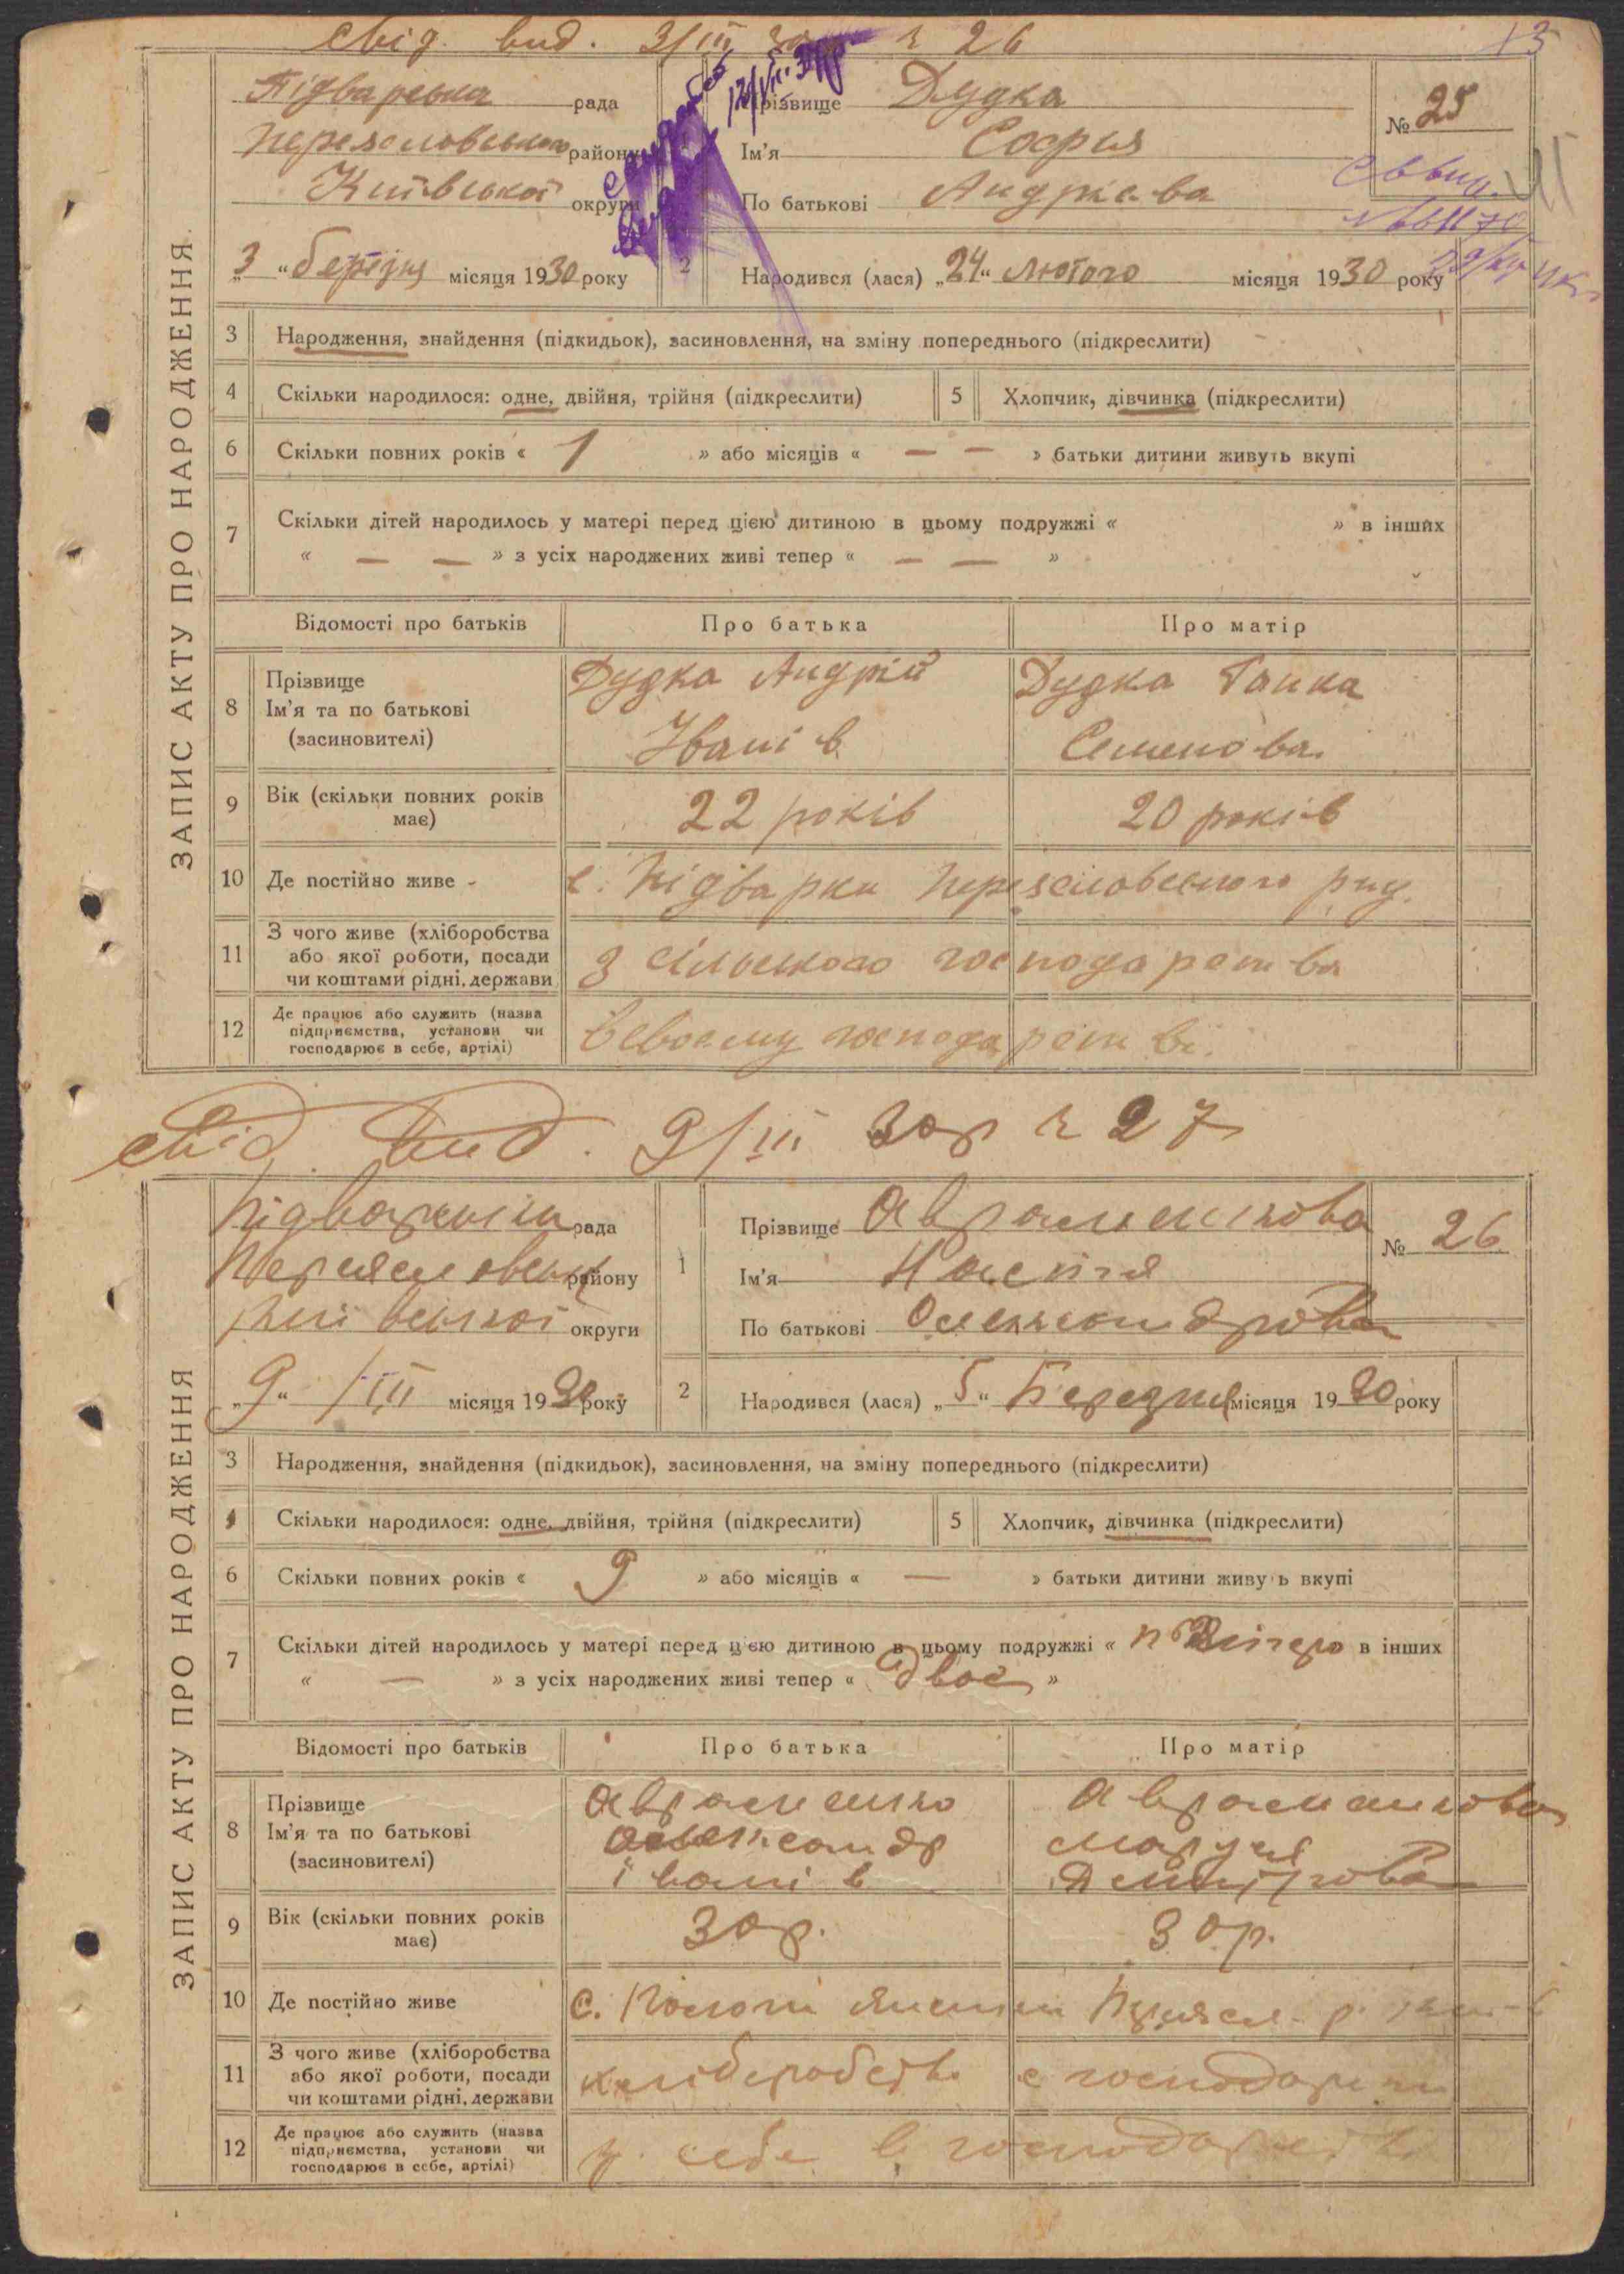 свід. вид. 3/III 30р ч 26
13
Підварська рада
Переяславського району
Київської округи
„3“ березня місяця 1930 року
1
Прізвище Дудка
Ім'я Софія
По батькові Андрієва
№ 25
2
Народився (лася) „24“ лютого місяця 1930 року
ЗАПИС АКТУ ПРО НАРОДЖЕННЯ.
3 Народження, знайдення (підкидьок), засиновлення, на зміну попереднього (підкреслити)
4 Скільки народилося: одне, двійня, трійня (підкреслити)
5 Хлопчик, дівчинка (підкреслити)
6 Скільки повних років « 1 » або місяців « — — » батьки дитини живуть вкупі
7 Скільки дітей народилось у матері перед цією дитиною в цьому подружжі « » в інших
« — — » з усіх народжених живі тепер « — — »
Відомості про батьків Про батька Про матір
8 Прізвище
Ім'я та по батькові
(засиновителі)
Дудка Андрій
Іванів
Дудка Ганка
Семенова
9 Вік (скільки повних років має)
22 років
20 років
10 Де постійно живе
с. Підварки Переяславського рад.
11 З чого живе (хліборобства
або якої роботи, посади
чи коштами рідні, держави
З сільського господарства
12 Де працює або служить (назва
підприємства, установи чи
господарює в себе, артілі)
В своєму господарстві.
свід. вид. 9/III 30р ч 27
Підварська рада
Переяславськ району
Київської округи
„9“ /III місяця 1930 року
1
Прізвище Авраменкова
Ім'я Настя
По батькові Олександрова
№ 26
2
Народився (лася) „5“ Березня місяця 1930 року
ЗАПИС АКТУ ПРО НАРОДЖЕННЯ
3 Народження, знайдення (підкидьок), засиновлення, на зміну попереднього (підкреслити)
4 Скільки народилося: одне, двійня, трійня (підкреслити)
5 Хлопчик, дівчинка (підкреслити)
6 Скільки повних років « 9 » або місяців « — » батьки дитини живуть вкупі
7 Скільки дітей народилось у матері перед цією дитиною в цьому подружжі « в інших
« — » з усіх народжених живі тепер « двоє »
Відомості про батьків Про батька Про матір
8 Прізвище
Ім'я та по батькові
(засиновителі)
Авраменко
Олександр
Іванів
Авраменкова
Маруся
Дмитрова
9 Вік (скільки повних років має)
30р.
30р.
10 Де постійно живе
с.
11 З чого живе (хліборобства
або якої роботи, посади
чи коштами рідні, держави
12 Де працює або служить (назва
підприємства, установи чи
господарює в себе, артілі)
у себе в господарстві